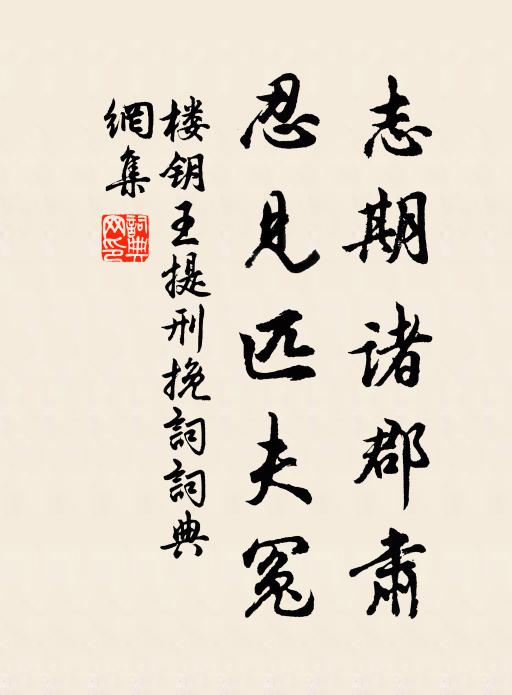 志期诸郡肃
忍见匹夫冤
楼钥王提刑挽词詞典
網集
詞典網印